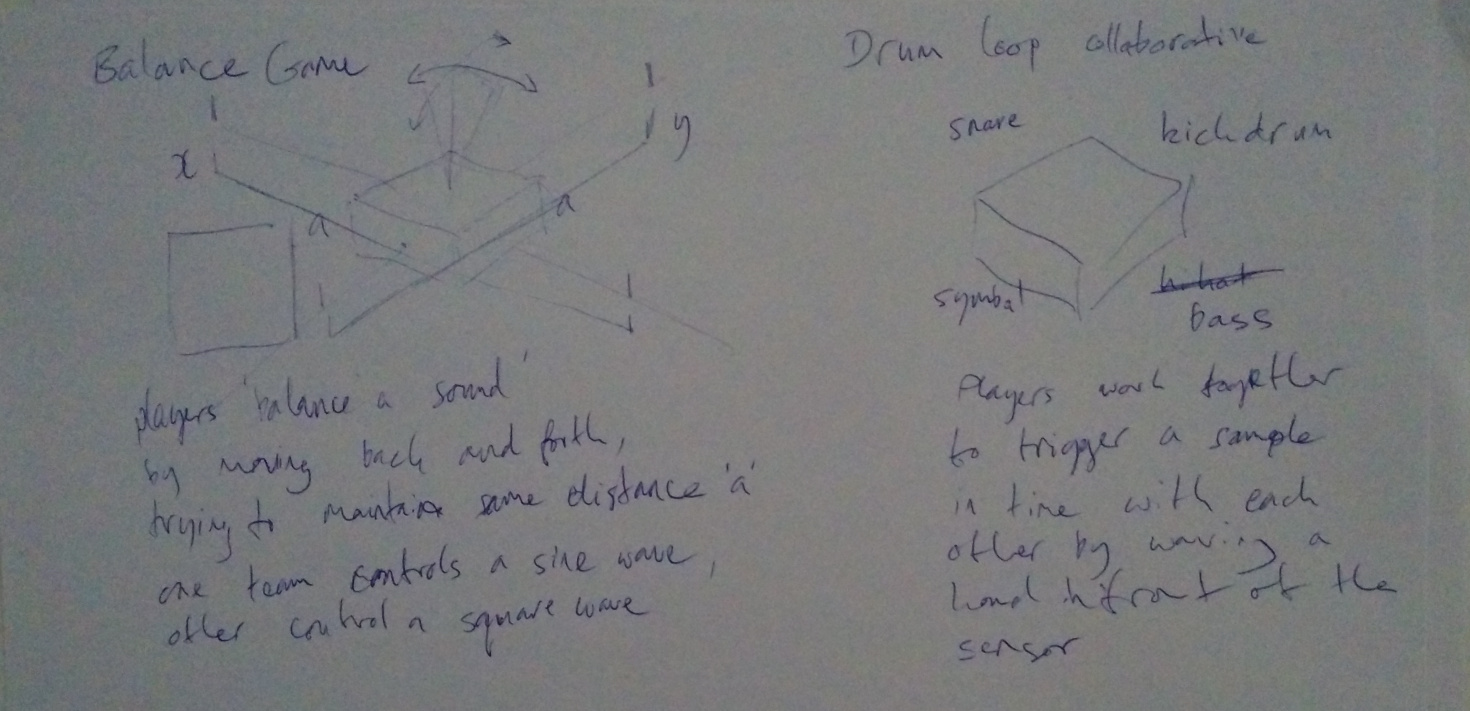 Balance Game
x
y
a
a
players 'balance a sound'
by moving back and forth,
trying to maintain same distance 'a'
one team controls a sine wave,
other control a square wave
Drum loop collaborative
snare
kick drum
symbal
h.hat
bass
Players work together
to trigger a sample
in time with each
other by waving a
hand in front of the
sensor